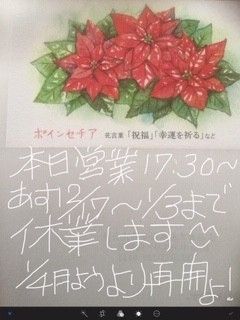 ポインセチア 花言葉「祝福」「幸運を祈る」など
本日営業17:30〜
あす12/27〜1/3まで
休業します
1/4月ようより再開よ!